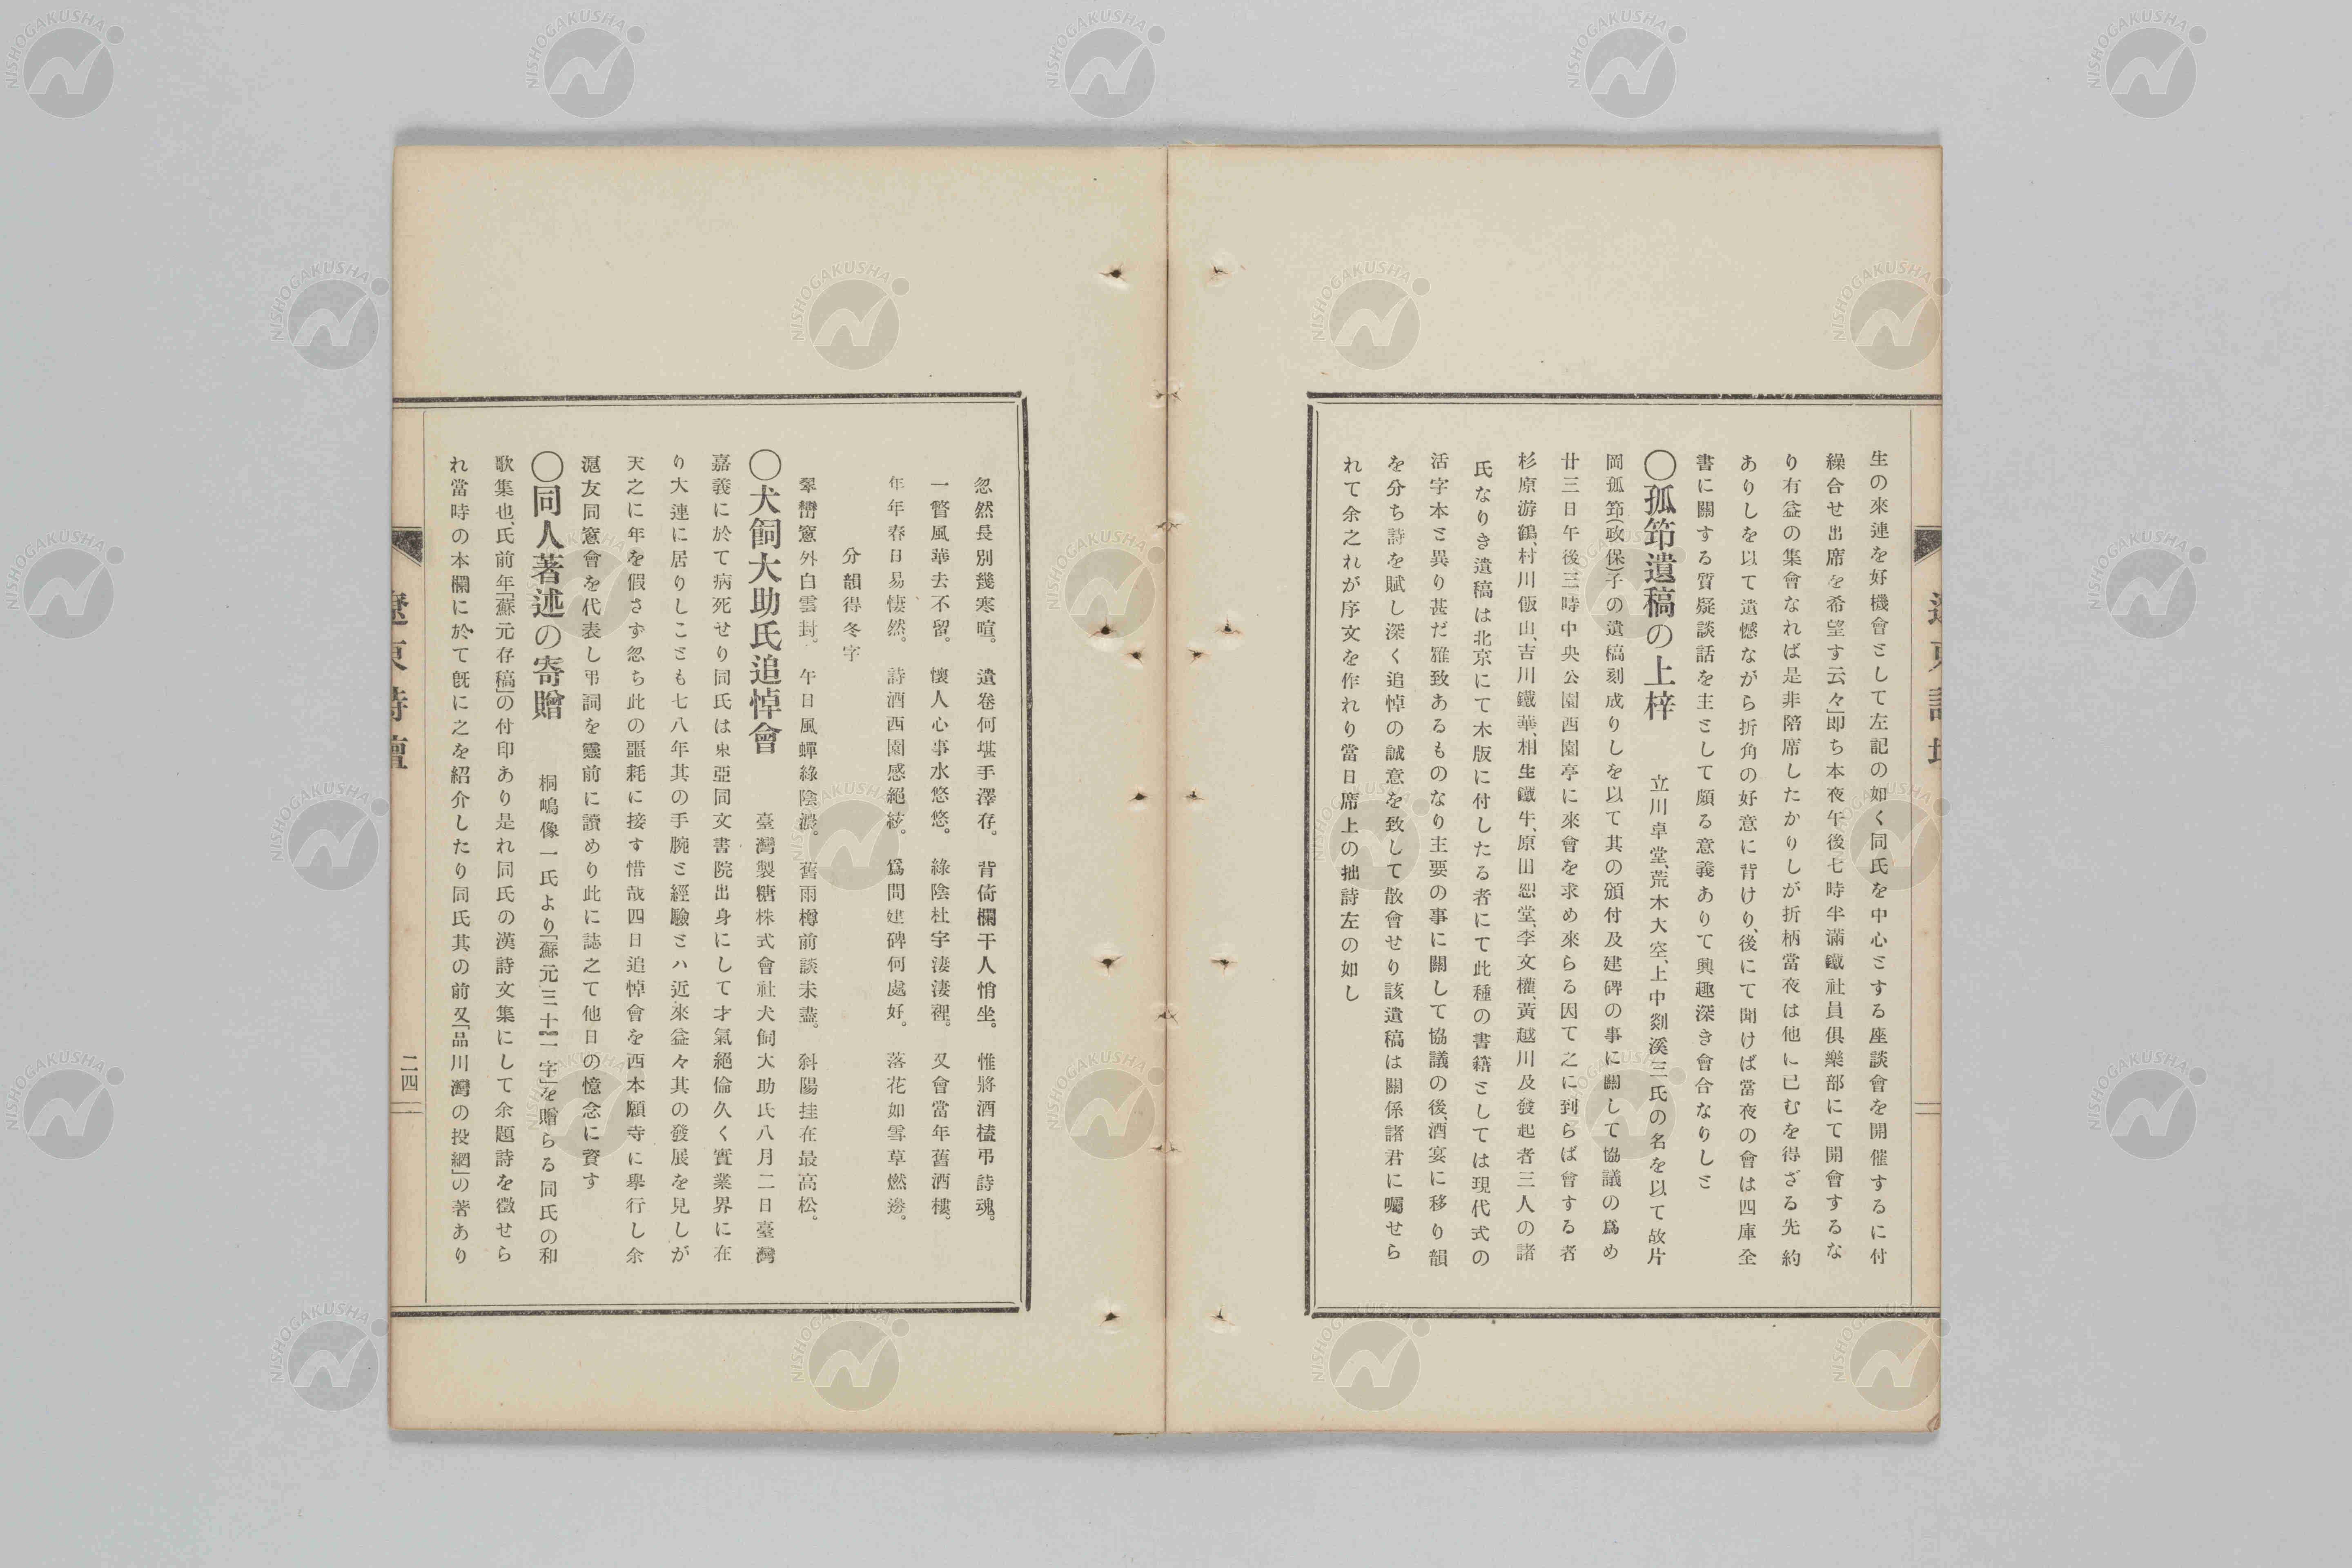 生の來連を好機會として左記の如く同氏を中心とする座談會を開催するに付
繰合せ出席を希望す云々」卽ち本夜午後七時半滿鐵社員俱樂部にて開會するな
り有益の集會なれば是非陪席したかりしが折柄當夜は他に已むを得ざる先約
ありしを以て遺憾ながら折角の好意に背けり、後にて聞けば當夜の會は四庫全
書に關する質疑談話を主として頗る意義ありて興趣深き會合なりしと
〇孤笻遺稿の上梓　立川卓堂、荒木大空、上中剡溪三氏の名を以て故片
岡孤笻(政保)子の遺稿刻成りしを以て其の頒付及建碑の事に關して協議の爲め
廿三日午後三時中央公園西園亭に來會を求め來らる因て之に到らば會する者
杉原游鶴、村川飯山、吉川鐵華、相生鐵牛、原田恕堂、李文權、黃越川及發起者三人の諸
氏なりき遺稿は北京にて木版に付したる者にて此種の書籍としては現代式の
活字本と異り甚だ雅致あるものなり主要の事に關して協議の後、酒宴に移り韻
を分ち詩を賦し深く追悼の誠意を致して散會せり該遺稿は關係諸君に囑せら
れて余之れが序文を作れり當日席上の拙詩左の如し
忽然長別幾寒暄。　遺卷何堪手澤存。　背倚欄干人悄坐。　惟將酒榼弔詩魂。
一瞥風華去不留。　懷人心事水悠悠。　綠陰杜宇淒淒裡。　又會當年舊酒樓。
年年春日易悽然。　詩酒西園感絕絃。　爲問建碑何處好。　落花如雪草燃邊。
分韻得冬字
翠巒窻外白雲封。　午日風蟬綠陰濃。　舊雨樽前談未盡。　斜陽挂在最高松。
〇犬飼大助氏追悼會　臺灣製糖株式會社犬飼大助氏八月二日臺灣
嘉義に於て病死せり同氏は東亞同文書院出身にして才氣絕倫久く實業界に在
り大連に居りしことも七八年其の手腕と經驗とハ近來益々其の發展を見しが
天之に年を假さず忽ち此の噩耗に接す惜哉四日追悼會を西本願寺に擧行し余
滬友同窻會を代表し弔詞を靈前に讀めり此に誌之て他日の憶念に資す
〇同人著述の寄贈　桐嶋像一氏より「蘇元三十一字」を贈らる同氏の和
歌集也、氏前年「蘇元存稿」の付印あり是れ同氏の漢詩文集にして余題詩を徵せら
れ當時の本欄に於て旣に之を紹介したり同氏其の前又「品川灣の投網」の著あり
二四